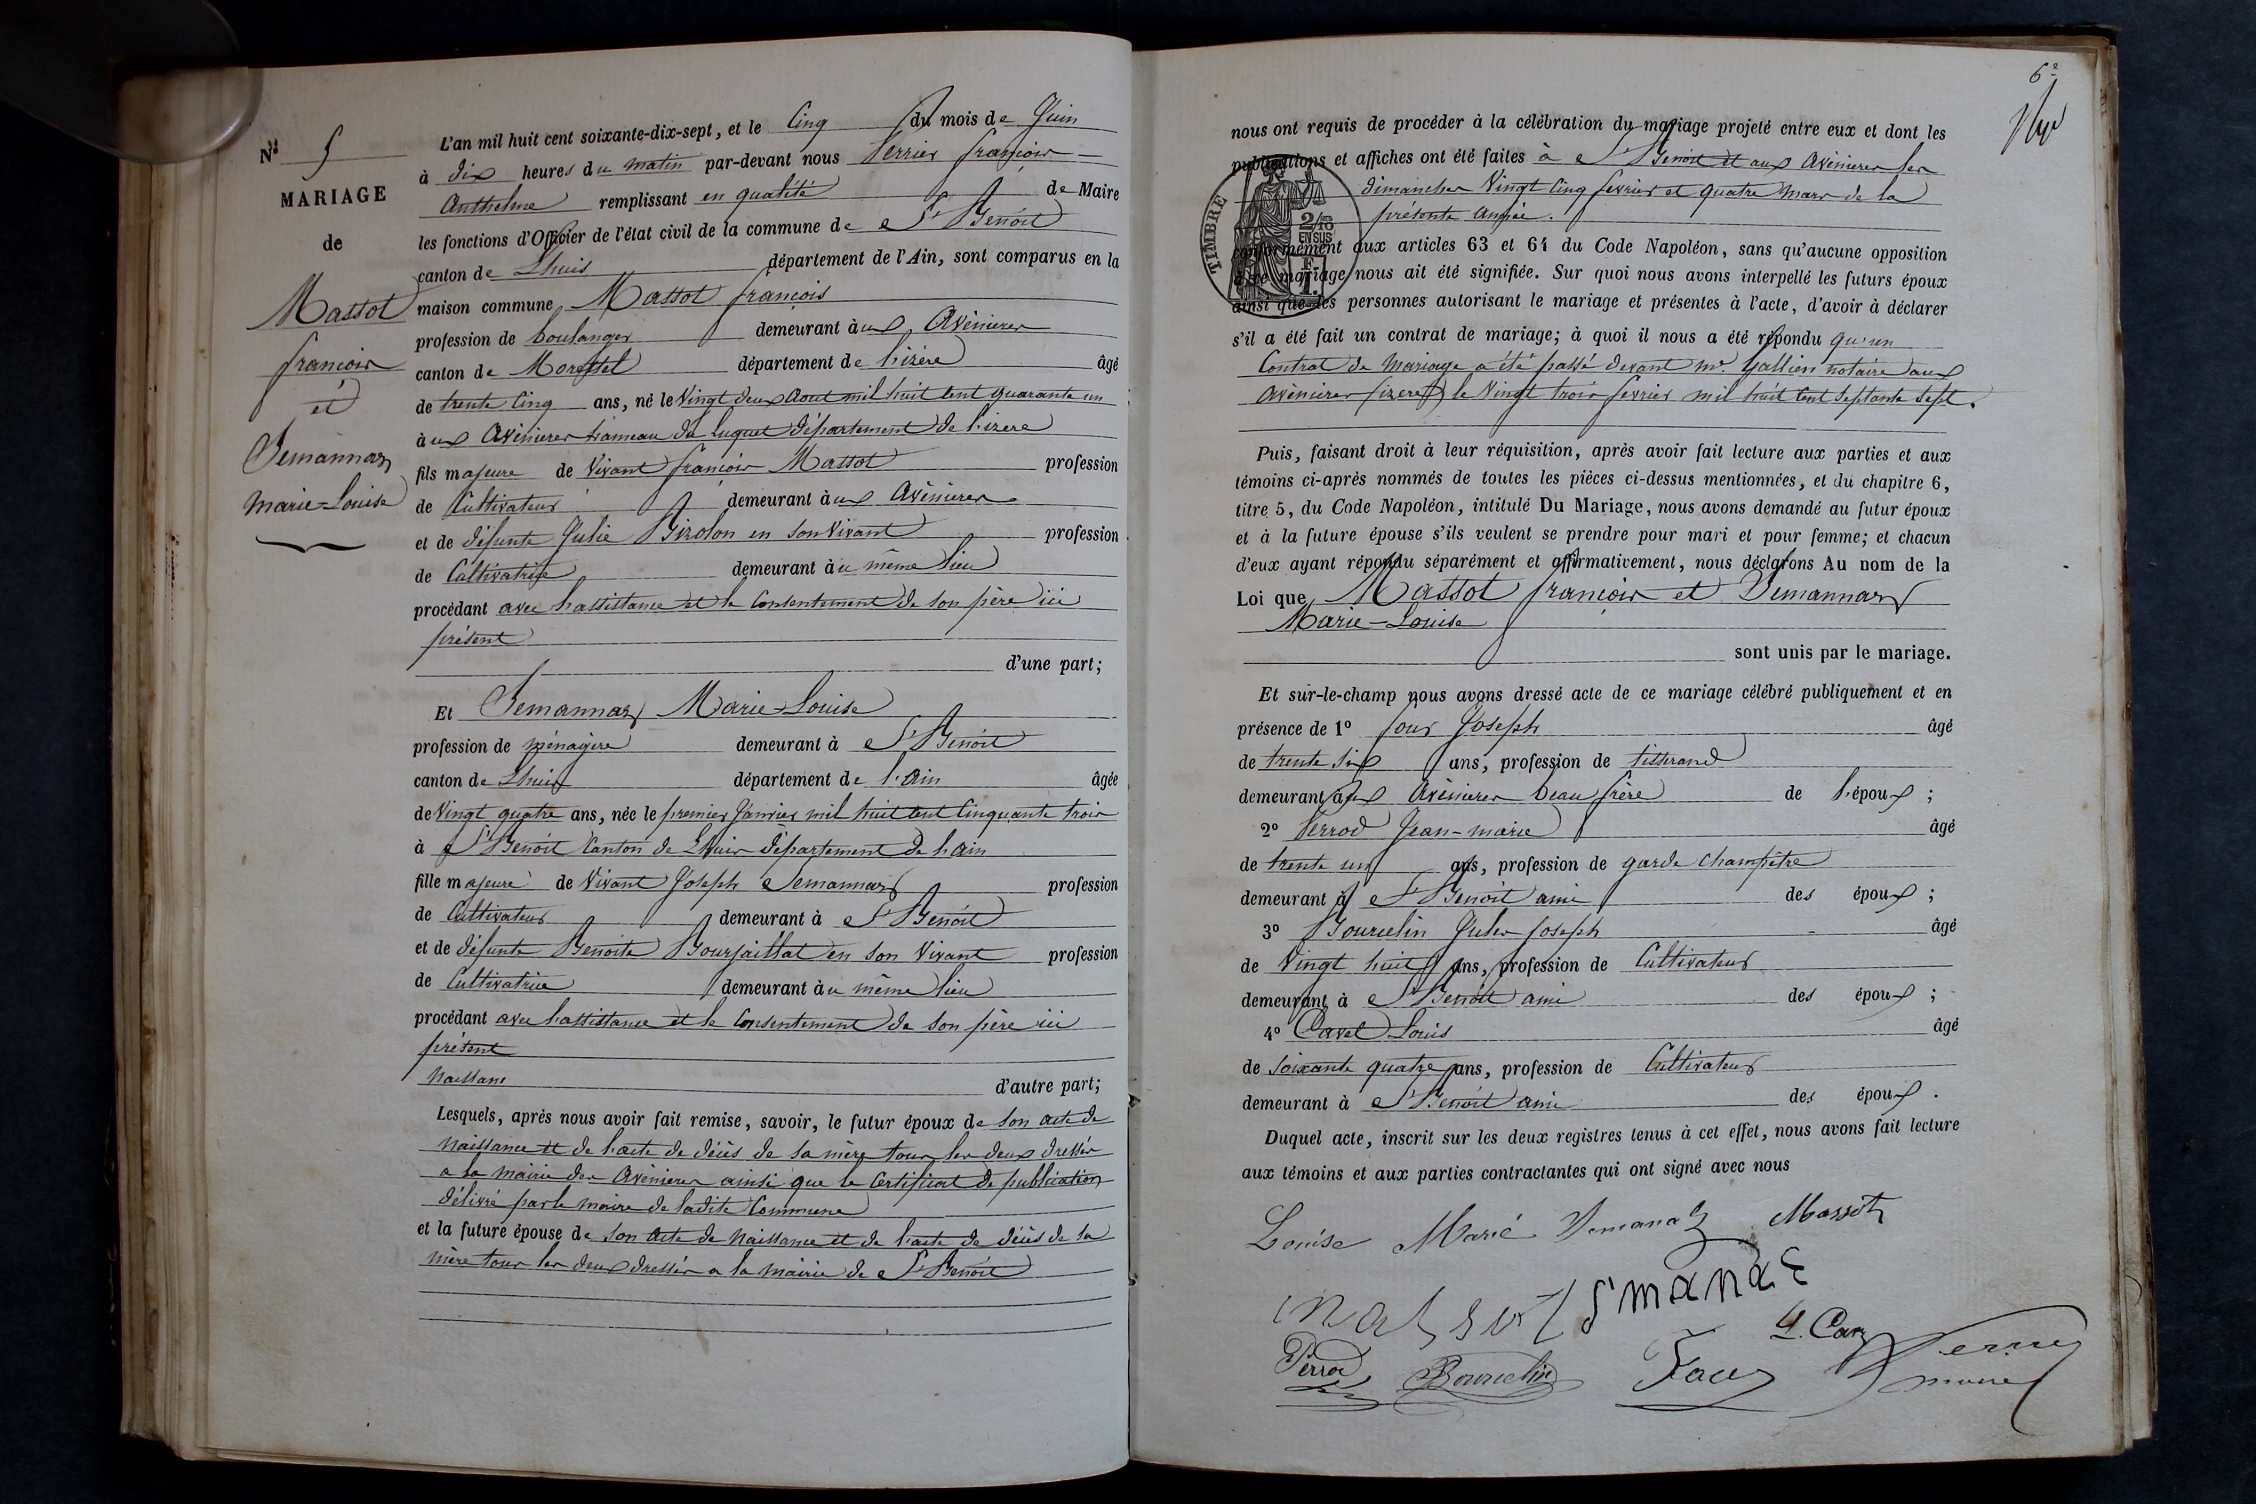 Nº 5
MARIAGE
de
Massot
françois
et
Semanaz
Marie-Louise
L'an mil huit cent soixante-dix-sept, et le Cinq du mois de Juin
à dix heures du matin par-devant nous françois
Anthelme remplissant en qualité de Maire
les fonctions d'Officier de l'état civil de la commune de St Benoit
canton de Lhuis département de l'Ain, sont comparus en la
maison commune Massot françois
profession de boulanger demeurant aux Avenieres
canton de Morestel département de l'izère âgé
de trente cinq ans, né le vingt deux Aout mil huit cent quarante un
aux Avenieres hameau du département de l'izere
fils majeure de vivant françois Massot profession
de Cultivateur demeurant aux Avenieres
et de défunte Julie Birolon en son vivant profession
de Cultivatrice demeurant au même lieu
procédant avec l'assistance et le consentement de son père ici
présent
d'une part;
Et Semannaz Marie-Louise
profession de ménagère demeurant à St Benoit
canton de Lhuis département de l'Ain âgée
de vingt quatre ans, née le premier Janvier mil huit cent cinquante trois
à St Benoit Canton de Lhuis département de l'ain
fille majeure de vivant Joseph Semannaz profession
de Cultivateur demeurant à St Benoit
et de défunte Benoite Bourjaillat en son vivant profession
de Cultivatrice demeurant au même lieu
procédant avec l'assistance et le consentement de son père ici
présent
naissanc d'autre part;
Lesquels, après nous avoir fait remise, savoir, le futur époux de son acte de
naissance et de l'acte de décès de sa mère tous les deux dressés
a la mairie des Avenieres ainsi que le Certificat de publication
délivré par le maire de ladite Commune
et la future épouse de son acte de naissance et de l'acte de décès de sa
mère tous les deux dressés a la mairie de St Benoit
6e
nous ont requis de procéder à la célébration du mariage projeté entre eux et dont les
publications et affiches ont été faites à St Benoit et aux Avenieres les
dimanches vingt cinq fevrier et quatre mars de la
présente année.
TIMBRE
2/10
EN SUS
conformément aux articles 63 et 64 du Code Napoléon, sans qu'aucune opposition
à ce mariage nous ait été signifiée. Sur quoi nous avons interpellé les futurs époux
ainsi que les personnes autorisant le mariage et présentes à l'acte, d'avoir à déclarer
s'il a été fait un contrat de mariage; à quoi il nous a été répondu qu'un
Contrat de Mariage a été passé devant Me Gallien notaire aux
Avenieres (izere) le vingt trois fevrier mil huit cent septante sept.
Puis, faisant droit à leur réquisition, après avoir fait lecture aux parties et aux
témoins ci-après nommés de toutes les pièces ci-dessus mentionnées, et du chapitre 6,
titre 5, du Code Napoléon, intitulé Du Mariage, nous avons demandé au futur époux
et à la future épouse s'ils veulent se prendre pour mari et pour femme; et chacun
d'eux ayant répondu séparément et affirmativement, nous déclarons Au nom de la
Loi que Massot françois et Semannaz
Marie-Louise
sont unis par le mariage.
Et sur-le-champ nous avons dressé acte de ce mariage célébré publiquement et en
présence de 1º Joseph âgé
de trente six ans, profession de tisserand
demeurant aux Avenieres beau frère de l'époux;
2º Perrod Jean-marie âgé
de trente un ans, profession de garde champêtre
demeurant à St Benoit ami des époux;
3º Bourcelin Jules Joseph âgé
de vingt huit ans, profession de Cultivateur
demeurant à St Benoit ami des époux;
4º Cavet Louis âgé
de soixante quatre ans, profession de Cultivateur
demeurant à St Benoit ami des époux.
Duquel acte, inscrit sur les deux registres tenus à cet effet, nous avons fait lecture
aux témoins et aux parties contractantes qui ont signé avec nous
Louise Marie Semanaz Massot
Perrod Bourcelin